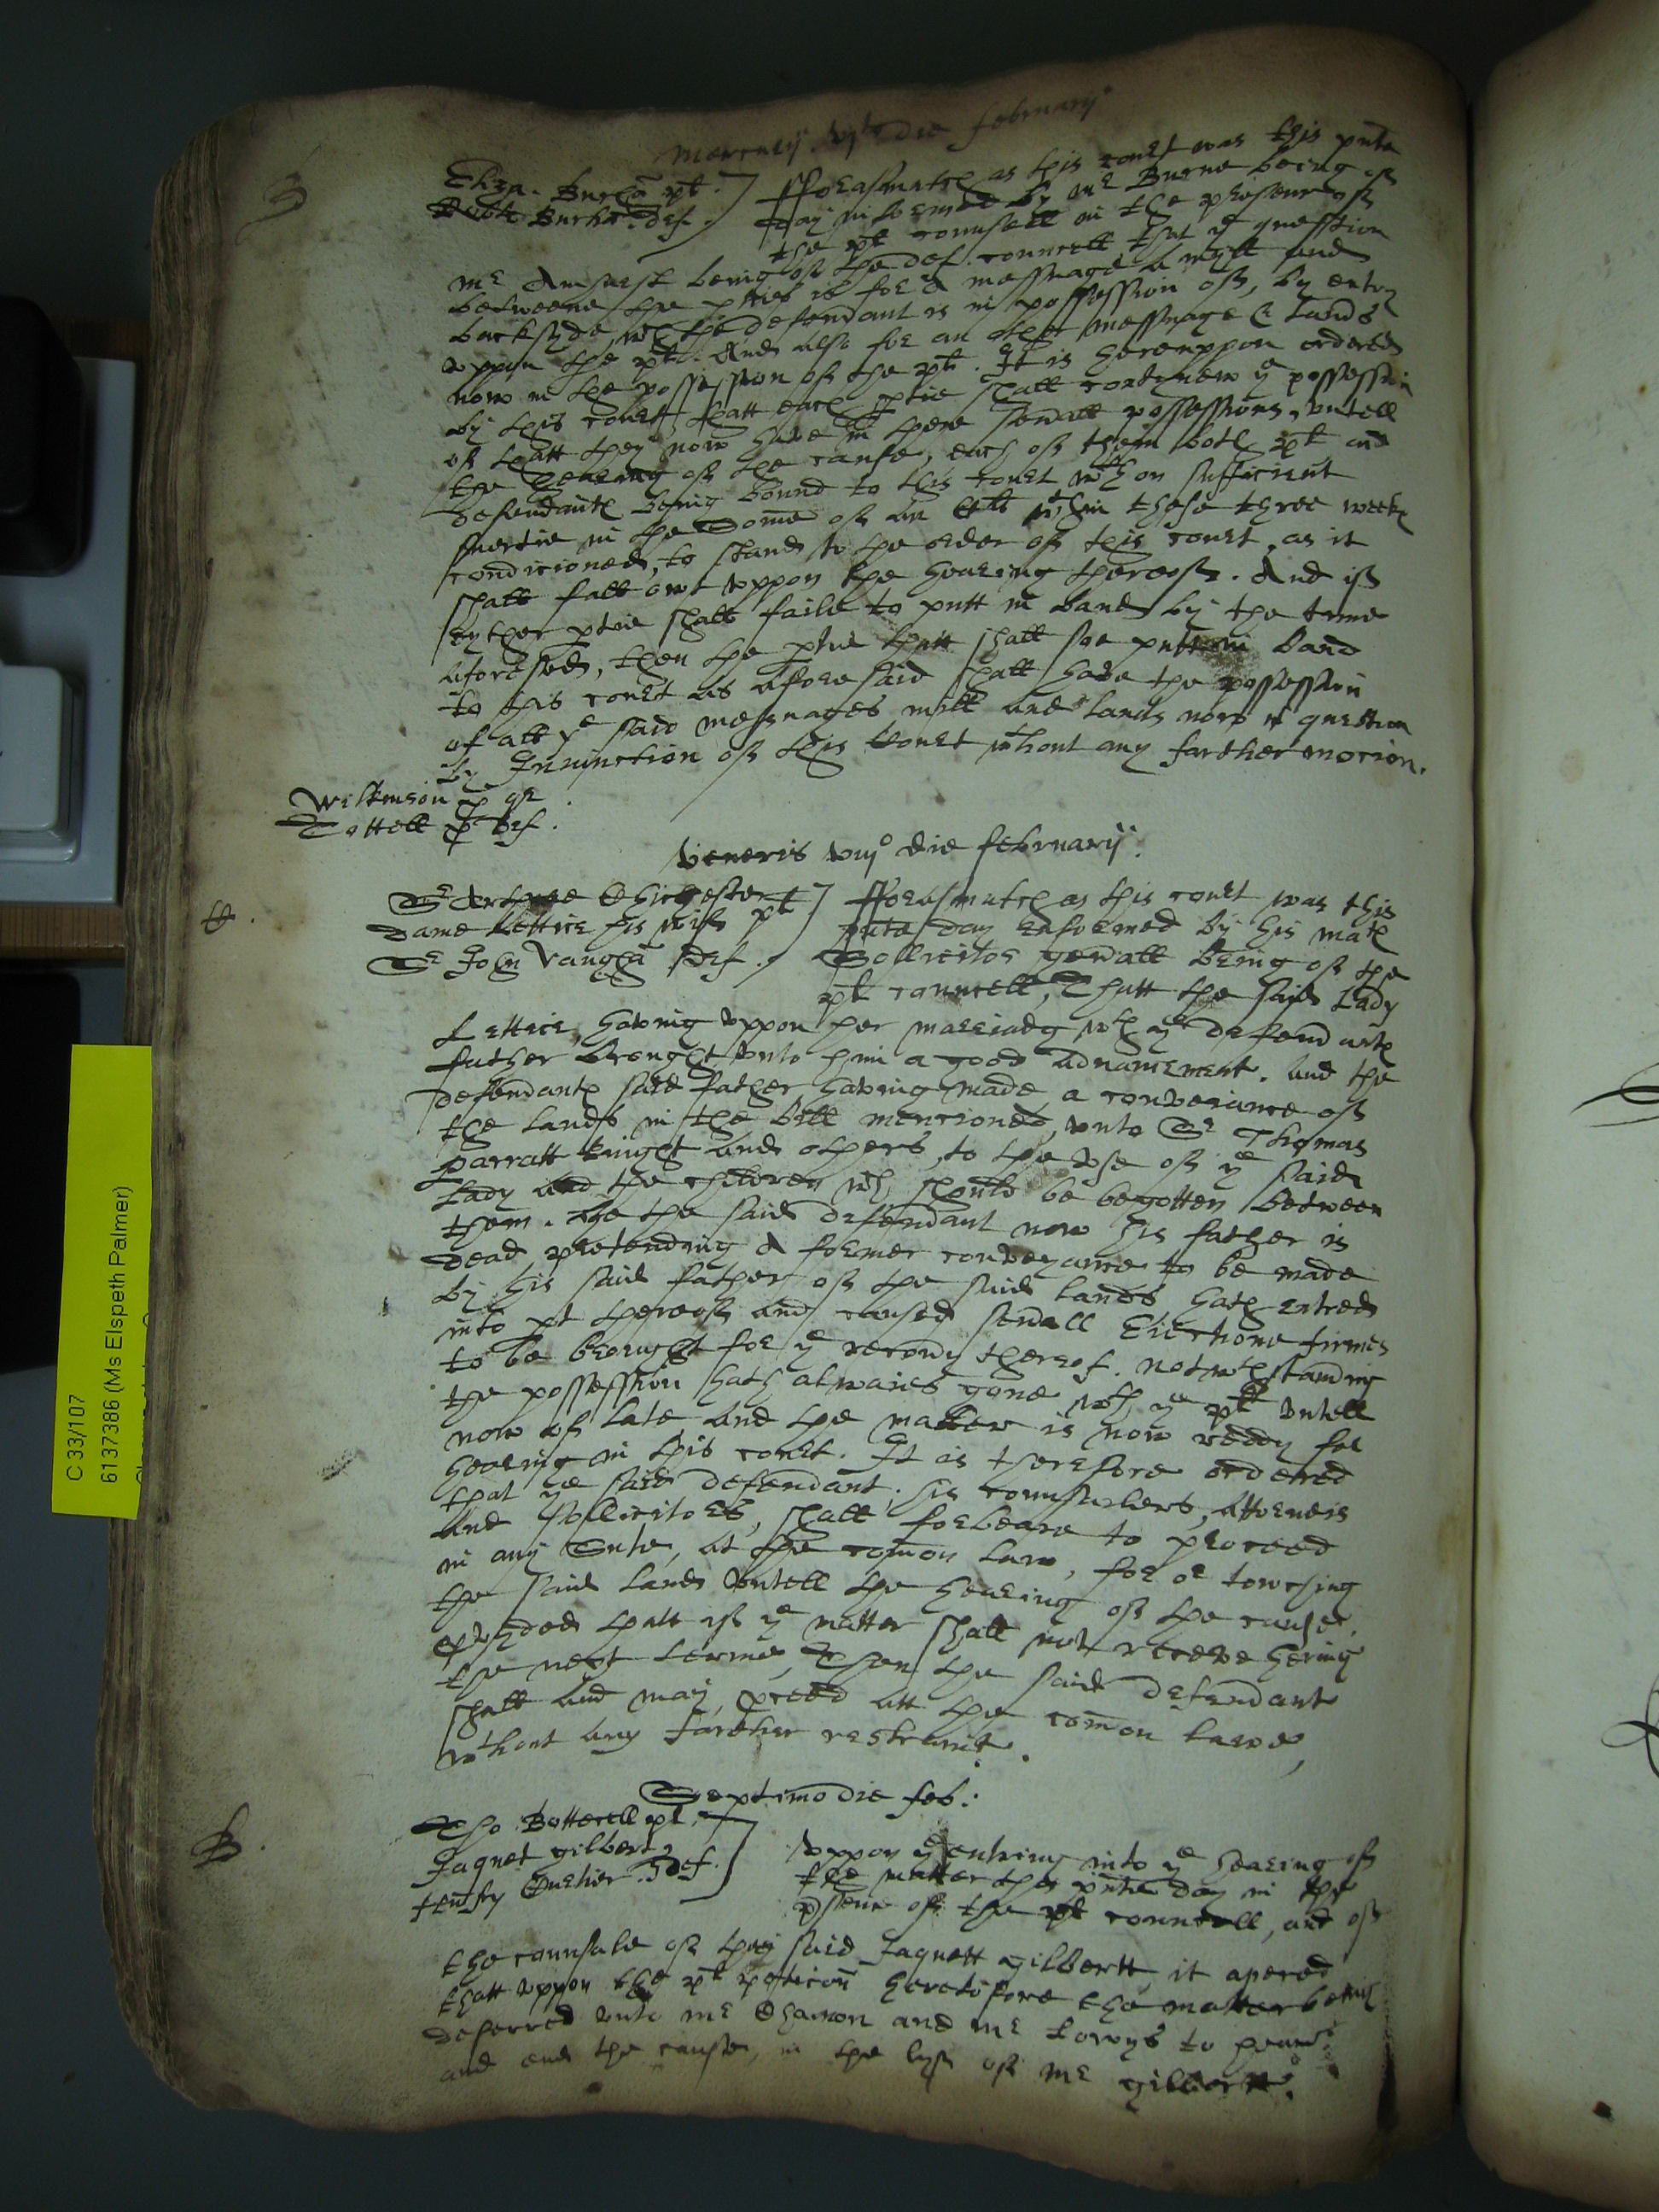 Mercurij vjto die februarij
B
Eliza. Burghā plt.
Robte Burhā def.
fforasmuch as this court was this pnte
day informed by mr Burne being of
the plt counsell in the presence of
mr Amherst being of the def. councell that ye question
betweene the pties is for a messuage a mill and
backsyde, wch the defendant is in possession of, by entry
uppon the plt. And also for an other messuage & lands
now in the possession of the plt. It is hereuppon ordered
by this court thatt each ptie shall contynew ye possession
of thatt they now have in there severall possessions, untell
the hearing of the cause, each of them both plt and
defendante being bound to this court wth on sufficient
suertie in the some of an Cli wthin these three weekes
condicioned, to stand to the order of this court, as it
shall fall owt uppon the hearing thereof. And if
eyther ptie shall faile to putt in band by the time
aforesaid, then the ptie thatt shall soe putt in band
to this court as aforesaid shall have the possession
of all ye said messuages mill and lands now in question
by Iniunction of this Court wthout any farther mocion.
Wilkinson p qr
Tottell p def.
Veneris viijo die februarij.
C.
Sr Arthure Chichester
Dame Lettice his wife plt
Sr John Vaughā def.
fforasmuch as this court was this
pnte day enformed by his mates
Sollicitor generall being of the
plt councell, Thatt the said Lady
Lettice, having uppon her marriadg wth ye defendants
father brought unto him a good advancement. and the
defendants said father having made a conveiance of
the lands in the bill mencioned, unto Sr Thomas
Parratt knight and others, to the use of ye said
Lady and the children wch should be begotten between
them. He the said defendant now his father is
dead pretending A former conveyance to be made
by his said father of the said lands, hath entred
into pt thereof and caused severall Eiectione firmes
to be brought for ye recovy thereof. notwthstanding
the possession hath alwaies gone wth ye plt untell
now of late and the matter is now reddy for
hearing in this court. It is therefore ordered
that ye said defendant, his counsulers, attorneis
and sollicitors, shall forbeare to proceed
in any Sute, at the comon law, for or towching
the said lands untell the hearing of the cause.
provyded thatt if ye matter shall not receve hering
the next terme, Then the said defendant
shall and may, proceed att the comon lawe,
wthout any farther restraint.
Septimo die feb:
B.
Tho. Botterell plt.
Jaquet gilbert
henry Currier def.
Uppon ye entring into ye hearing of
the matter this pnte day in the
psenc of the plt councell, and of
the counsale of they said Jaquett gilbertt, it apered
thatt uppon the plt peticoñ heretofore the matter being
deferred unto mr Chamon and mr Lowys to heare
and end the cause, in the lyf of mr gilbertt.
C 33/107
6137386 (Ms Elspeth Palmer)